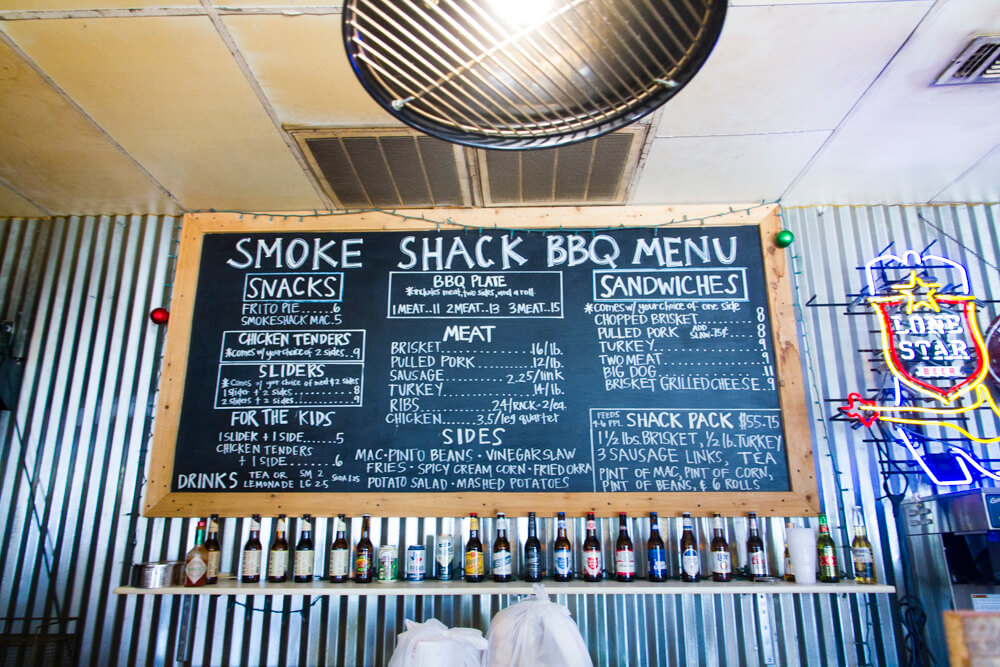 SMOKE SHACK BBQ MENU
SNACKS
FRITO PIE......6
SMOKESHACK MAC.5
CHICKEN TENDERS
*comes w/ your choice of 2 sides..9
SLIDERS
*comes w/ your choice of meat & 2 sides
1 slider + 2 sides.........8
2 sliders + 2 sides........9
FOR THE KIDS
1 SLIDER + 1 SIDE......5
CHICKEN TENDERS
+ 1 SIDE..........6
DRINKS TEA OR LEMONADE SM 2 LG 2.5 SODA 1.25
BBQ PLATE
*includes meat, two sides, and a roll
1 MEAT..11 2 MEAT..13 3 MEAT..15
MEAT
BRISKET..............16/lb.
PULLED PORK.........12/lb.
SAUSAGE..........2.25/link
TURKEY..............14/lb.
RIBS..........24/RACK-2/ea.
CHICKEN......3.5/leg quarter
SIDES
MAC·PINTO BEANS·VINEGAR SLAW
FRIES·SPICY CREAM CORN·FRIED OKRA
POTATO SALAD·MASHED POTATOES
SANDWICHES
*comes w/ your choice of one side
CHOPPED BRISKET........8
PULLED PORK ADD SLAW .75¢.....8
TURKEY................9
TWO MEAT..............9
BIG DOG...............11
BRISKET GRILLED CHEESE.9
FEEDS 4-6 PPL. SHACK PACK $55.75
1 1/2 lbs. BRISKET, 1/2 lb. TURKEY
3 SAUSAGE LINKS, TEA
PINT OF MAC, PINT OF CORN,
PINT OF BEANS, & 6 ROLLS
LONE
STAR
BEER